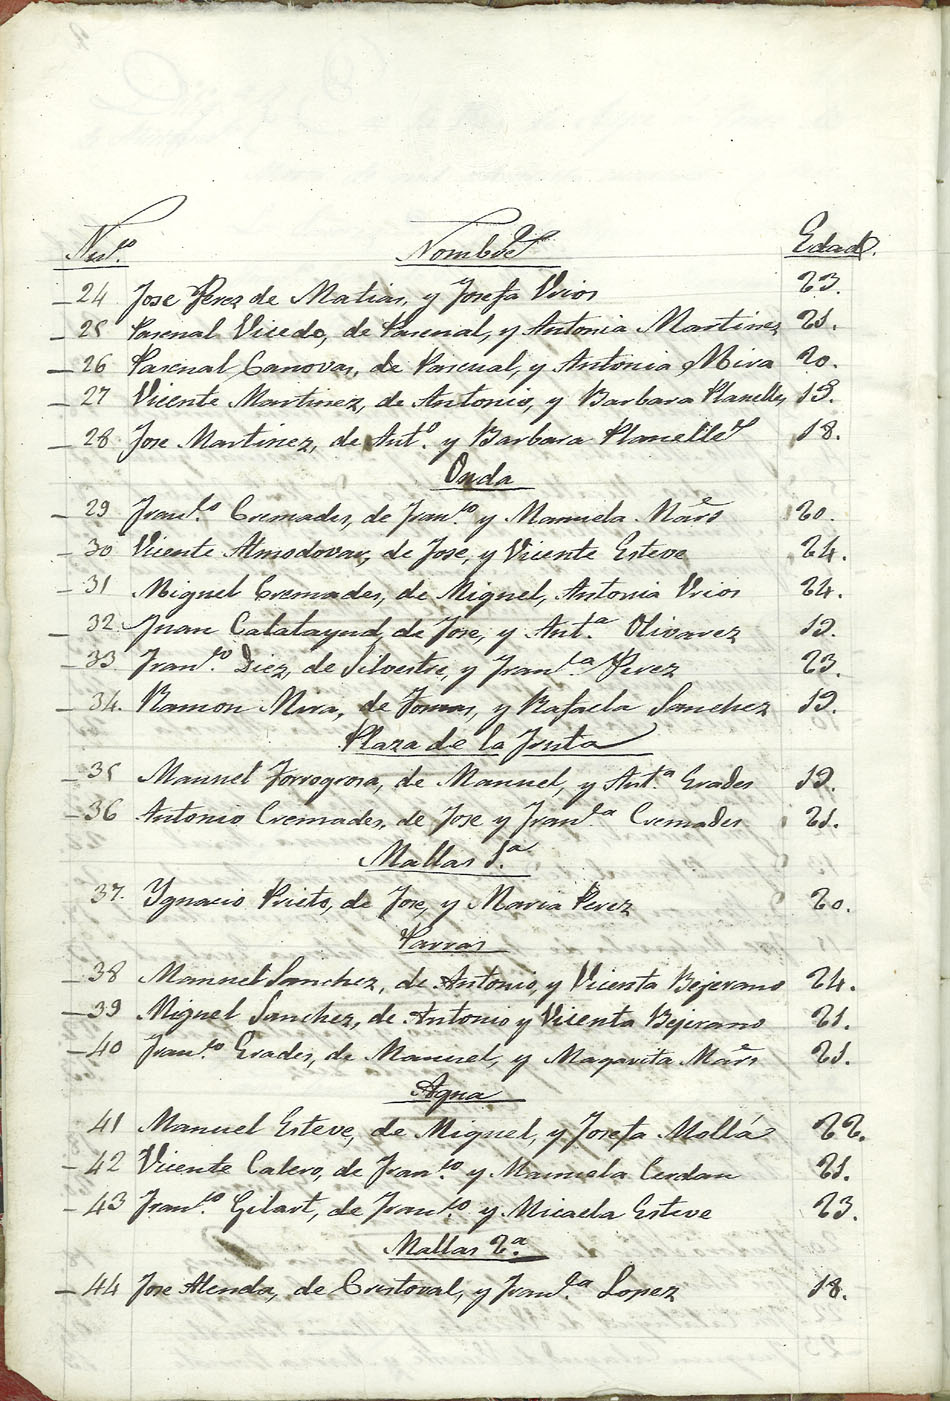 Num.º Nombres Edad.
24 Jose Perez de Matias, y Josefa Vrios 23.
25 Pascual Vicedo, de Pascual, y Antonia Martinez 21.
26 Pascual Canovas, de Pascual, y Antonia Mira 20.
27 Vicente Martinez, de Antonio, y Barbara Planelles 19.
28 Jose Martinez, de Ant.º y Barbara Planelles 18.
Onda
29 Fran.co Cremades, de Fran.co y Manuela 20.
30 Vicente Almodovar, de Jose, y Vicente Esteve 24.
31 Miguel Cremades, de Miguel, Antonia Vrios 24.
32 Juan Calatayud, de Jose, y Ant.a Olivarez 19.
33 Fran.co Diez, de Silvestre, y Fran.ca Perez 23.
34 Ramon Mira, de Tomas, y Rafaela Sanchez 19.
Plaza de la Fruta
35 Manuel Torrogrosa, de Manuel, y Ant.a Grades 19.
36 Antonio Cremades, de Jose y Fran.ca Cremades 21.
Mallas 1.a
37. Ygnacio Prieto, de Jose, y Maria Perez 20.
Parras
38 Manuel Sanchez, de Antonio, y Vicenta Bejerano 24.
39 Miguel Sanchez, de Antonio y Vicenta Bejerano 21.
40 Fran.co Grades, de Manuel, y Margarita 21.
Agua
41 Manuel Esteve, de Miguel, y Josefa Mollá 22.
42 Vicente Calero, de Fran.co y Manuela Cerdan 21.
43 Fran.co Gilart, de Fran.co y Micaela Esteve 23.
Mallas 2.a
44 Jose Alenda, de Cristoval, y Fran.ca Lopez 18.